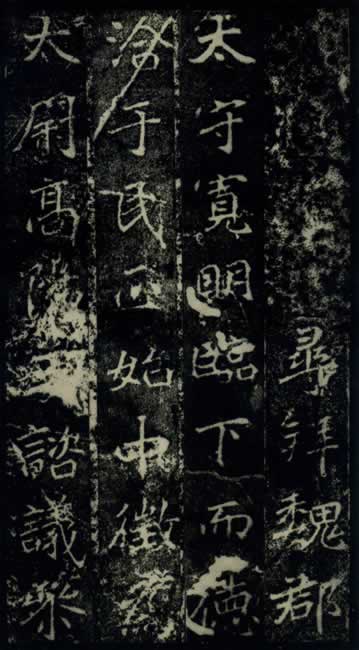 尋拜魏郡
太守寬明臨下而德
洽于民正始中徵為
太尉髙陽王諮議叅